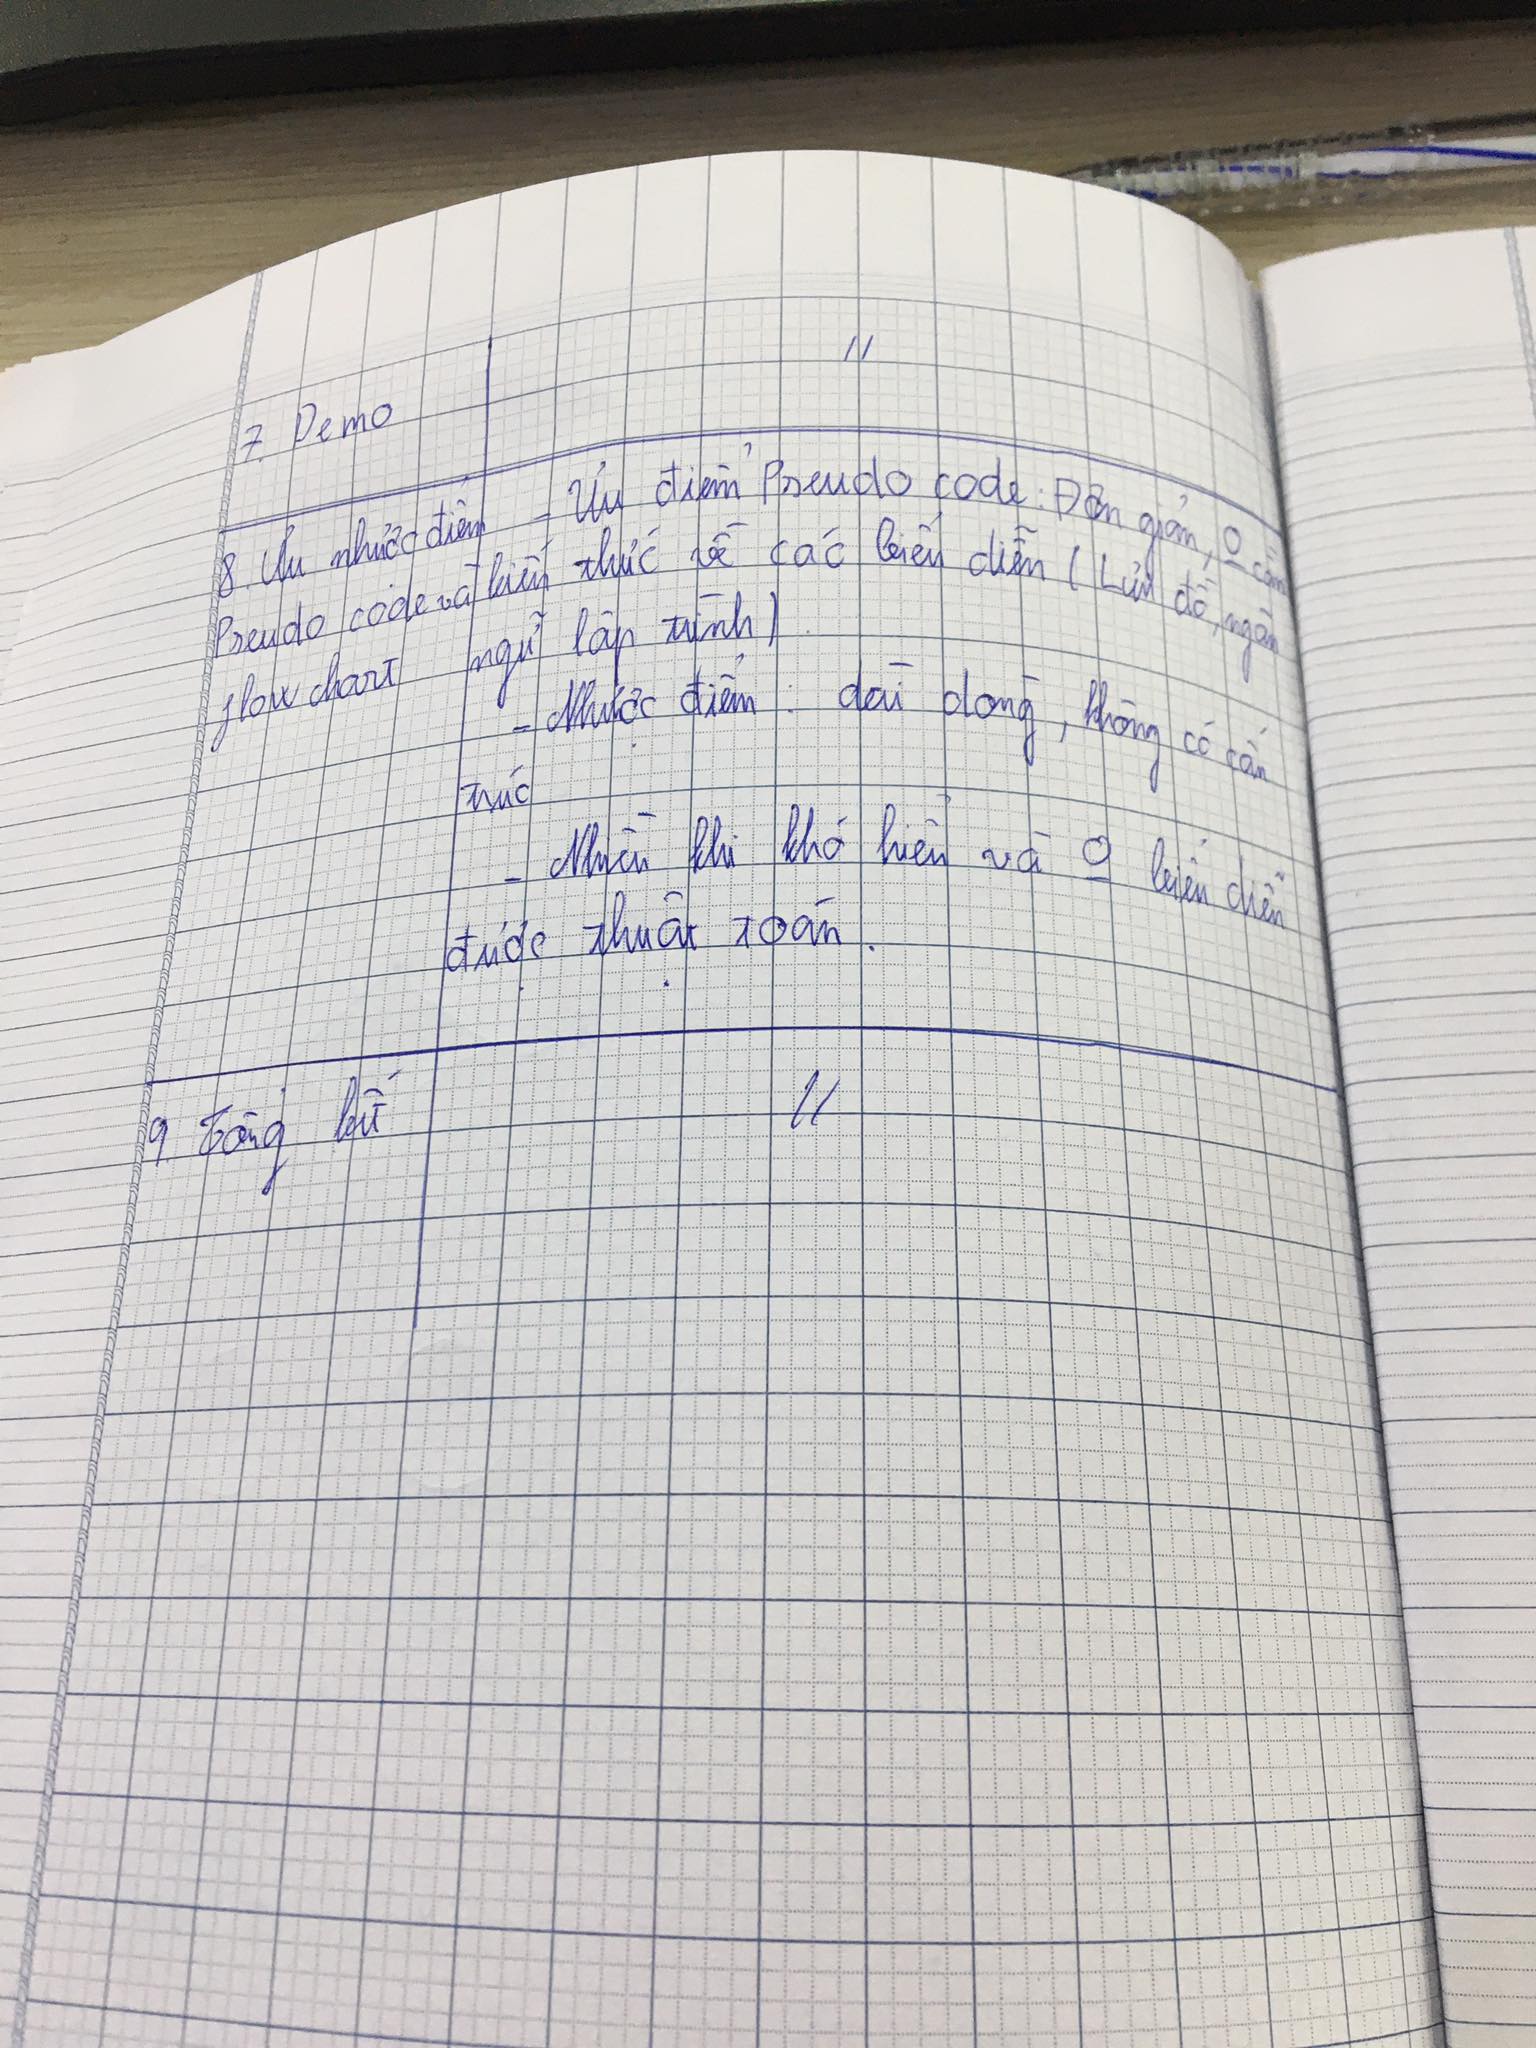 7. Demo
//
8. Ưu nhược điểm
Pseudo code và
flow chart
- Ưu điểm Pseudo code: Đơn giản, 0 cần
kiến thức về các biểu diễn (Lưu đồ, ngôn
ngữ lập trình)
- Nhược điểm: dài dòng, không có cấu
trúc
- Nhiều khi khó hiểu và 0 biểu diễn
được thuật toán.
9. Tổng kết
//